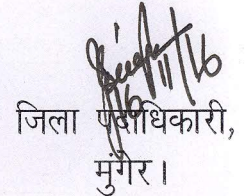 16/11/16
जिला पदाधिकारी,
मुंगेर।